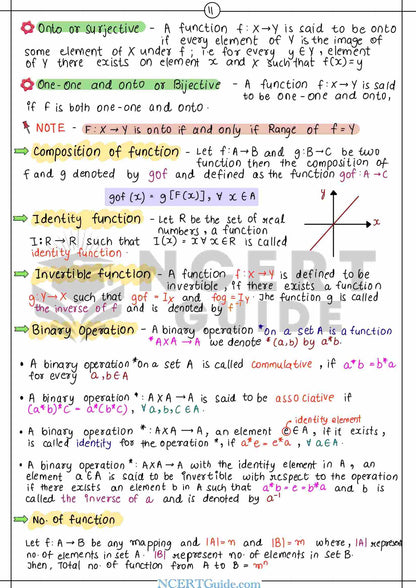 11
Onto or surjective - A function f: X→Y is said to be onto
if every element of Y is the image of
some element of X under f ; i.e for every y ∈ Y, element
of Y there exists on element x and X such that f(x)=y
One-one and onto or Bijective - A function f: X→Y is said
to be one-one and onto,
if F is both one-one and onto.
NOTE - F: X→Y is onto if and only if Range of f=Y
Composition of function - Let f: A→B and g: B→C be two
function then the composition of
f and g denoted by gof and defined as the function gof: A→C
gof (x) = g [F(x)], ∀ x ∈ A
Identity function - Let R be the set of real
numbers, a function
I: R→R such that I(x) = x ∀ x ∈ R is called
identity function.
y
x
Invertible function - A function f: X→Y is defined to be
invertible, if there exists a function
g: Y→X such that gof = Ix and fog = Iy. The function g is called
the inverse of f and is denoted by f⁻¹
Binary Operation - A binary operation *on a set A is a function
*A×A → we denote *(a,b) by a*b.
• A binary operation *on a set A is called commulative, if a*b = b*a
for every a,b ∈ A
• A binary operation *: A×A → A is said to be associative if
(a*b)*C = a*(b*c), ∀ a,b,c ∈ A.
identity element
• A binary operation *: A×A → A, an element e ∈ A, if it exists,
is called identity for the operation *, if a*e = e*a, ∀ a ∈ A.
• A binary operation *: A×A → A with the identity element in A, an
element a ∈ A is said to be invertible with respect to the operation
if there exists an element b in A such that a*b = e = b*a and b is
called the inverse of a and is denoted by a⁻¹
No. of function
Let f: A→B be any mapping and |A|=n and |B|=m where, |A| represent
no. of elements in set A. |B| represent no. of elements in set B.
Then, Total no. of function from A to B = mⁿ
NCERT
GUIDE
NCERTGuide.com